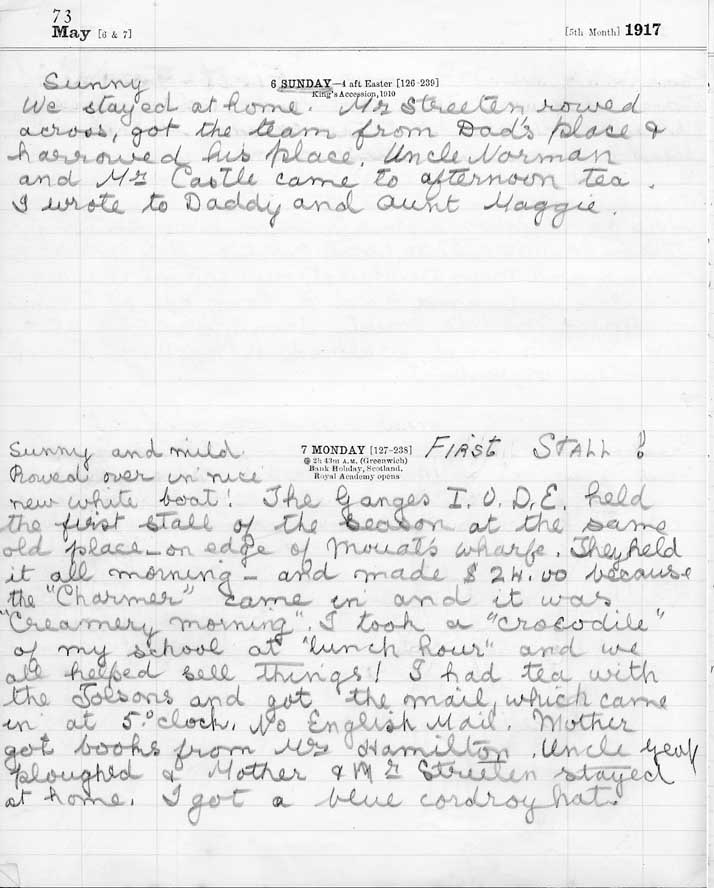 73
May [6 & 7]
[5th Month] 1917
6 SUNDAY—4 aft Easter [126-239]
King's Accession, 1910
Sunny
We stayed at home. Mr Streeten rowed
across, got the team from Dad's place &
harrowed his place. Uncle Norman
and Mr Castle came to afternoon tea.
I wrote to Daddy and Aunt Maggie.
7 MONDAY [127-238]
2h 43m A.M. (Greenwich)
Bank Holiday, Scotland,
Royal Academy opens
FIRST STALL!
Sunny and mild.
Rowed over in nice
new white boat! The Ganges I.O.D.E. held
the first stall of the season at the same
old place - on edge of Mouat's wharfe. They held
it all morning - and made $24.00 because
the "Charmer" came in and it was
"Creamery morning". I took a "crocodile"
of my school at "lunch hour" and we
all helped sell things! I had tea with
the Tolsons and got the mail, which came
in at 5.o'clock. No English Mail. Mother
got books from Mrs Hamilton. Uncle Geoff
ploughed & Mother & Mr Streeten stayed
at home. I got a blue cordroy hat.